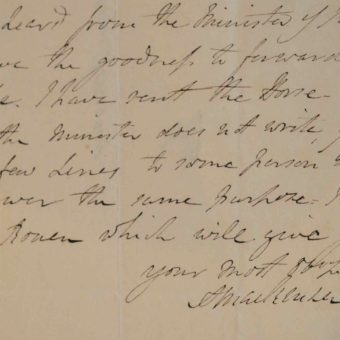 heard from the Minister of
the goodness to forward
I have sent the Horse
the Minister does not write,
few Lines to some person
the same purpose.
Rouen which will give
your most